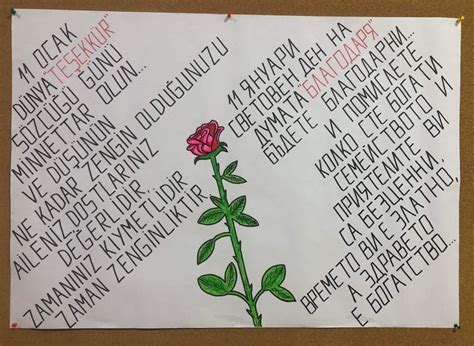 11 OCAK
DÜNYA "TEŞEKKÜR"
SÖZCÜĞÜ GÜNÜ
MİNNETTAR OLUN...
VE DÜŞÜNÜN
NE KADAR ZENGİN OLDUĞUNUZU
AİLENİZ DOSTLARINIZ
DEĞERLİDİR...
ZAMANINIZ KIYMETLİDİR
ZAMAN ZENGİNLİKTİR
11 ЯНУАРИ
СВЕТОВЕН ДЕН НА
ДУМАТА "БЛАГОДАРЯ"
БЪДЕТЕ БЛАГОДАРНИ...
И ПОМИСЛЕТЕ
КОЛКО СТЕ БОГАТИ
СЕМЕЙСТВОТО И
ПРИЯТЕЛИТЕ ВИ
СА БЕЗЦЕННИ,
ВРЕМЕТО ВИ Е ЗЛАТНО,
А ЗДРАВЕТО
Е БОГАТСТВО...